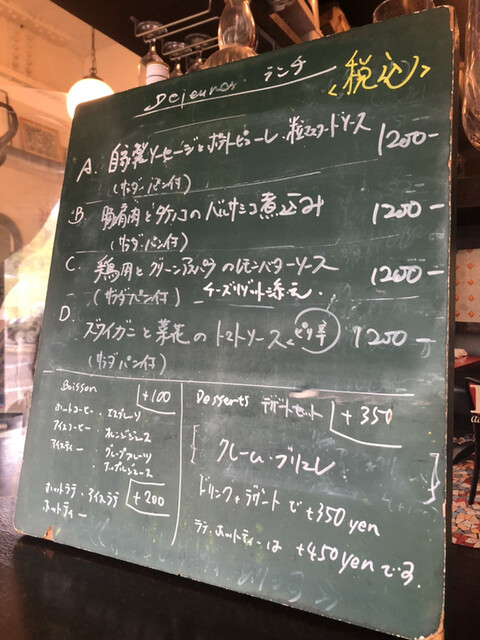 Dejeuner ランチ <税込>
A. 自家製ソーセージとポテトピューレ 粒マスタードソース 1200-
(サラダ・パン付)
B. 豚肩肉とタケノコのバルサミコ煮込み 1200-
(サラダ・パン付)
C. 鶏肉とグリーンアスパラのレモンバターソース 1200-
(サラダパン付) チーズリゾット添え.
D. ズワイガニと菜花のトマトソース <ピリ辛> 1200-
(サラダパン付)
Boisson +100
ホットコーヒー・エスプレッソ
アイスコーヒー・オレンジジュース
アイスティー・グレープフルーツ
・アップルジュース
ホットラテ・アイスラテ +200
ホットティー
Desserts デザートセット +350
[クレーム・ブリュレ]
ドリンク+デザートで+350yen
ラテ・ホットティーは+450yenです.